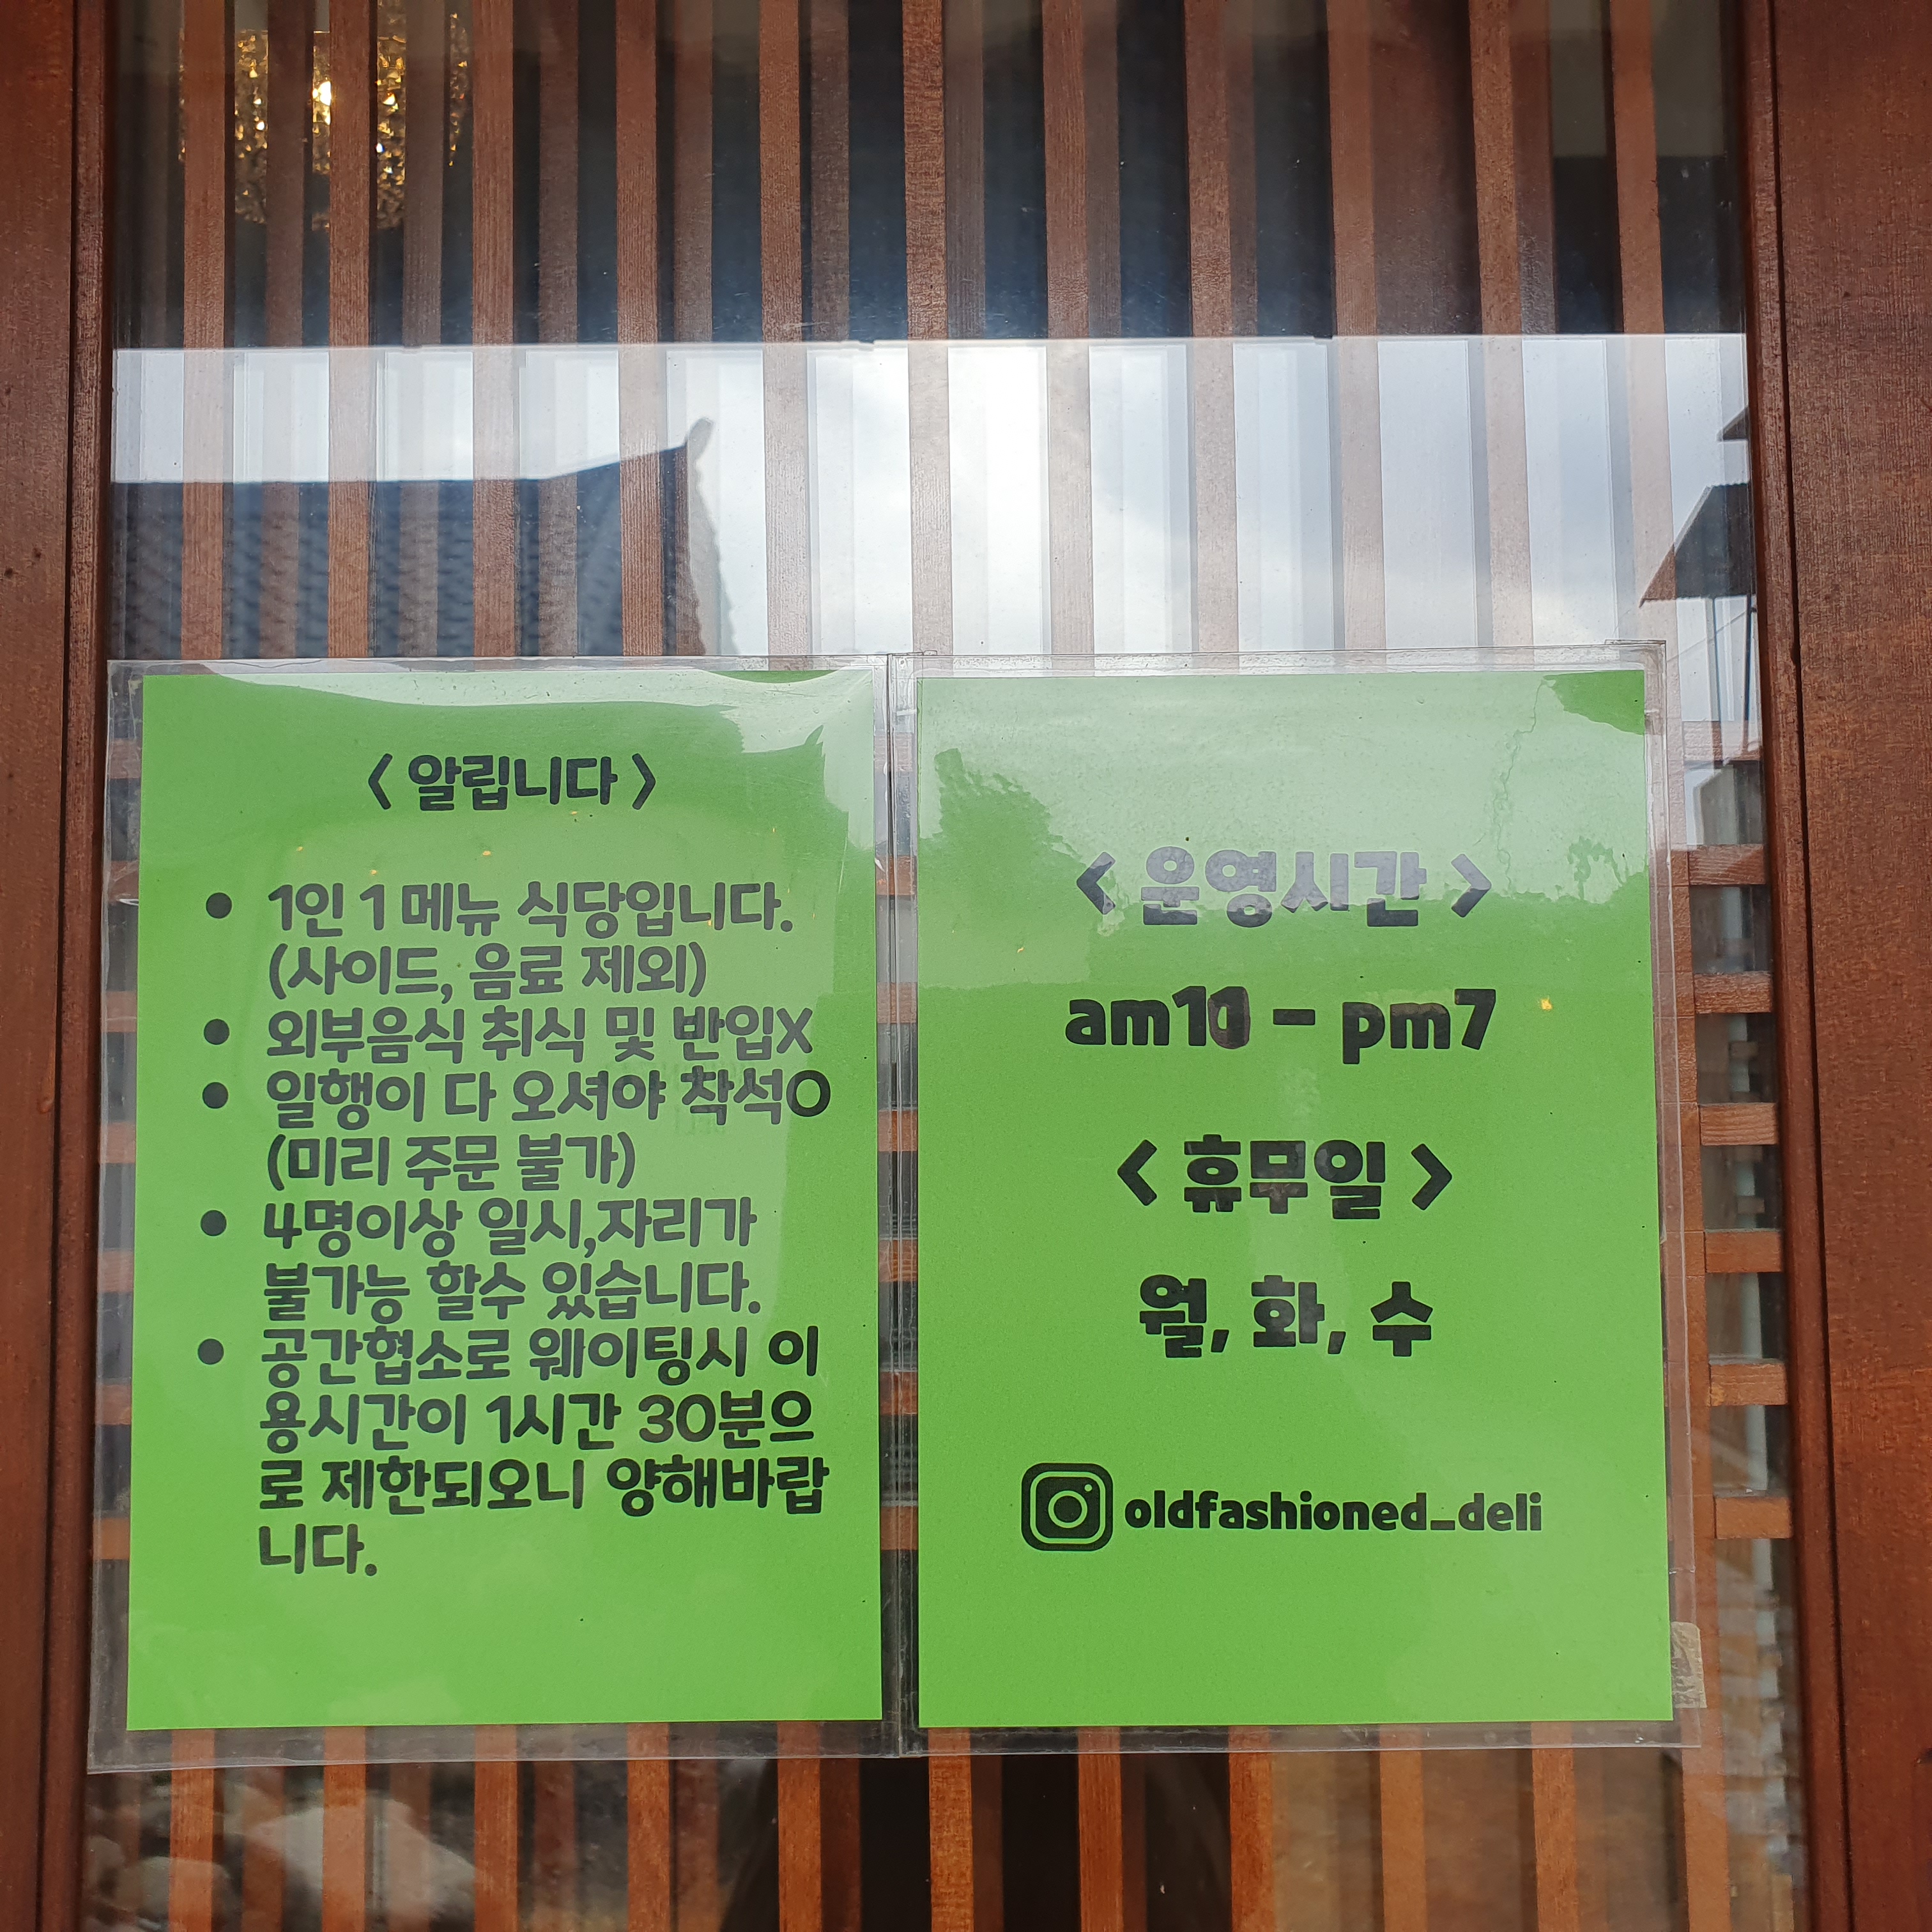 < 알립니다 >
• 1인 1 메뉴 식당입니다.
(사이드, 음료 제외)
• 외부음식 취식 및 반입X
• 일행이 다 오셔야 착석O
(미리 주문 불가)
• 4명이상 일시,자리가
불가능 할수 있습니다.
• 공간협소로 웨이팅시 이
용시간이 1시간 30분으
로 제한되오니 양해바랍
니다.
< 운영시간 >
am10 - pm7
< 휴무일 >
월, 화, 수
oldfashioned_deli